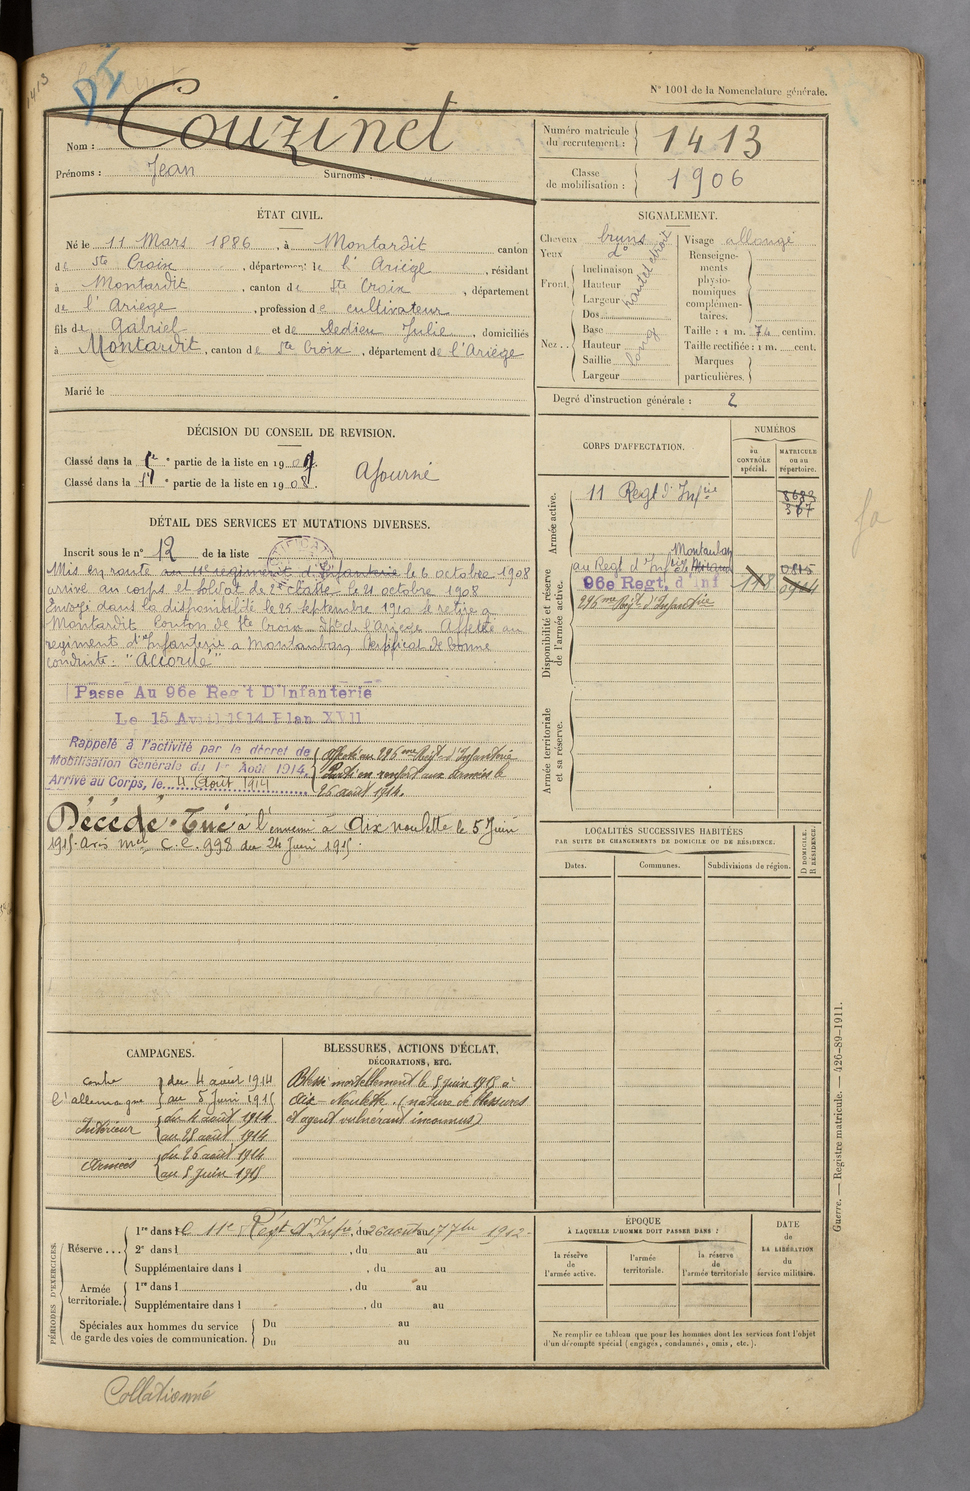 N° 1001 de la Nomenclature générale.
1413
Nom : Couzinet
Prénoms : Jean Surnoms :
Numéro matricule du recrutement : 1413
Classe de mobilisation : 1906
ÉTAT CIVIL.
Né le 11 Mars 1886, à Montardit canton
de Ste Croix, département de l'Ariège, résidant
à Montardit, canton de Ste Croix, département
de l'Ariege, profession de cultivateur
fils de Gabriel et de Dedieu Julie, domiciliés
à Montardit, canton de Ste Croix, département de l'Ariège
Marié le
SIGNALEMENT.
Cheveux bruns
Yeux do
Front. Inclinaison
Hauteur
Largeur
Nez.. Dos
Base
Hauteur
Saillie
Largeur
long
Visage allongé
Renseignements physionomiques complémentaires.
Taille : 1 m. 74 centim.
Taille rectifiée : 1 m. cent.
Marques particulières.
Degré d'instruction générale : 2
DÉCISION DU CONSEIL DE REVISION.
Classé dans la 5e partie de la liste en 1907.
Classé dans la partie de la liste en 1908.
Ajourné
DÉTAIL DES SERVICES ET MUTATIONS DIVERSES.
Inscrit sous le n° 12 de la liste
Mis en route au 11e regiment d'Infanterie le 6 octobre 1908
arrivé au corps et soldat de 2e classe le octobre 1908
Envoyé dans la disponibilité le 25 septembre 1910 se retire a
Montardit Canton de Ste Croix dpt de l'Ariege Affecté au
regiment d'Infanterie a Montauban Certificat de bonne
conduite : "Accordé"
Passé Au 96e Reg't D'Infanterie
Le 15 Avril 1914 Plan XVII
Rappelé à l'activité par le décret de
Mobilisation Générale du 1er Août 1914.
Arrivé au Corps, le 4 Août 1914
Affecté au 296me Regt d'Infanterie
Parti en renfort aux armées le
26 août 1914.
Décédé. Tué à l'ennemi à Aix noulette le 5 Juin
1915. Avis mel C.C. 998 du 24 Juin 1915.
CORPS D'AFFECTATION.
NUMÉROS
au CONTRÔLE spécial.
MATRICULE ou au répertoire.
Armée active.
11 Regt d'Infie
8683
367
Disponibilité et réserve de l'armée active.
Montauban
au Regt d'Infie de
96e Regt. d'Inf
118
296me Regt d'Infanterie
Armée territoriale et sa réserve.
LOCALITÉS SUCCESSIVES HABITÉES
PAR SUITE DE CHANGEMENTS DE DOMICILE OU DE RÉSIDENCE.
Dates. Communes. Subdivisions de région.
D DOMICILE.
R RÉSIDENCE.
CAMPAGNES.
contre l'allemagne du 4 août 1914
au 5 Juin 1915
Intérieur du 4 août 1914
au 25 août 1914
Armées du 26 août 1914
au 5 Juin 1915
BLESSURES, ACTIONS D'ÉCLAT,
DÉCORATIONS, ETC.
Blessé mortellement le 5 juin 1915 à
Aix-Noulette. (nature de blessures
et agent vulnérant inconnus)
PÉRIODES D'EXERCICES.
Réserve... 1re dans le 11e Regt d'Infie, du 26 aout au 17 7bre 1912
2e dans l , du au
Supplémentaire dans l , du au
Armée territoriale. 1re dans l , du au
Supplémentaire dans l , du au
Spéciales aux hommes du service de garde des voies de communication. Du au
Du au
ÉPOQUE
À LAQUELLE L'HOMME DOIT PASSER DANS :
la réserve de l'armée active.
l'armée territoriale.
la réserve de l'armée territoriale
DATE de LA LIBÉRATION du service militaire.
Ne remplir ce tableau que pour les hommes dont les services font l'objet
d'un décompte spécial (engagés, condamnés, omis, etc.).
Guerre. — Registre matricule. — 426-89-1911.
Collationné